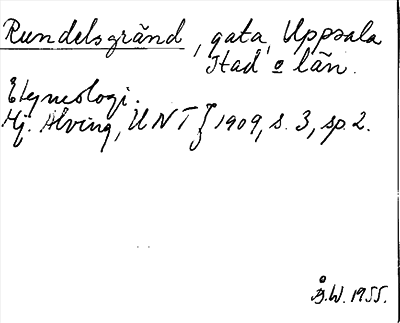 Rundelsgränd, gata, Uppsala
stad o län.
Etymologi.
Hj. Alving, UNT 1909, s. 3, sp. 2.
Å.W. 1955.